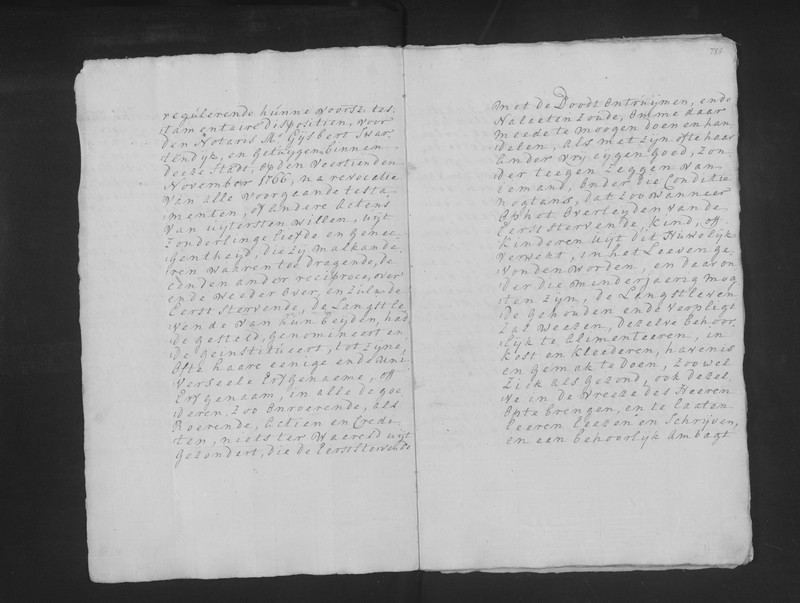 regúlerende húnne voorsz: tes,
tamentaire Disposition, voor
den Notaris Mr Gijsbert
en Getuijgen binnen
deeze Stadt, op den Veertienden
November 1766, na revocatie
van alle voorgaande testa
menten, of andere Actens
van uijtersten willen, uijt
Zonderlinge liefde en Genee,
gentheijd, die zij malkande
ren waaren toe dragende, de
een den ander reciproce, over
ende weeder over, en zúlx de
Eerst Stervende, de Langstle
vende van hún beijden, had
de gesteld, genomineert en
de geinstitueert, tot zijne,
Ofte haare eenige ende uni
verseele Erfgenaeme, off
Erfgenaam, in alle de goe
deren, zoo onroerende, als
Roerende, Actien en Crede
ten, niets ter Waereld uijt
gezondert, die de Eerststervende
735
met de Doodt ontruijmen, ende
Nalaeten zoude, omme daar
meede te moogen doen en han
delen, als met zijn ofte haar
ander vrij eijgen goed, zon
der teegen zeggen van
iemand, onder die Conditie
nogtans, dat zoo wanneer
Op het Overleijden van de
Eerst stervende, kind, off
kinderen uijt dit Húwelijk
verwekt, in het Leeven ge,
vonden worden, en daar on
der die minderjaerig mog
ten zijn, de Langstleven
de gehouden ende verpligt
zal weezen, dezelve behoor
lijk te alimenteeren, in
kost en kleederen, havenis
en gemak te doen, zoo wel
Ziek als gezond, ook dezel
ve in de Vreeze des Heeren
Op te brengen, en te laaten
leeren leezen en Schrijven,
en een behoorlijk ambagt